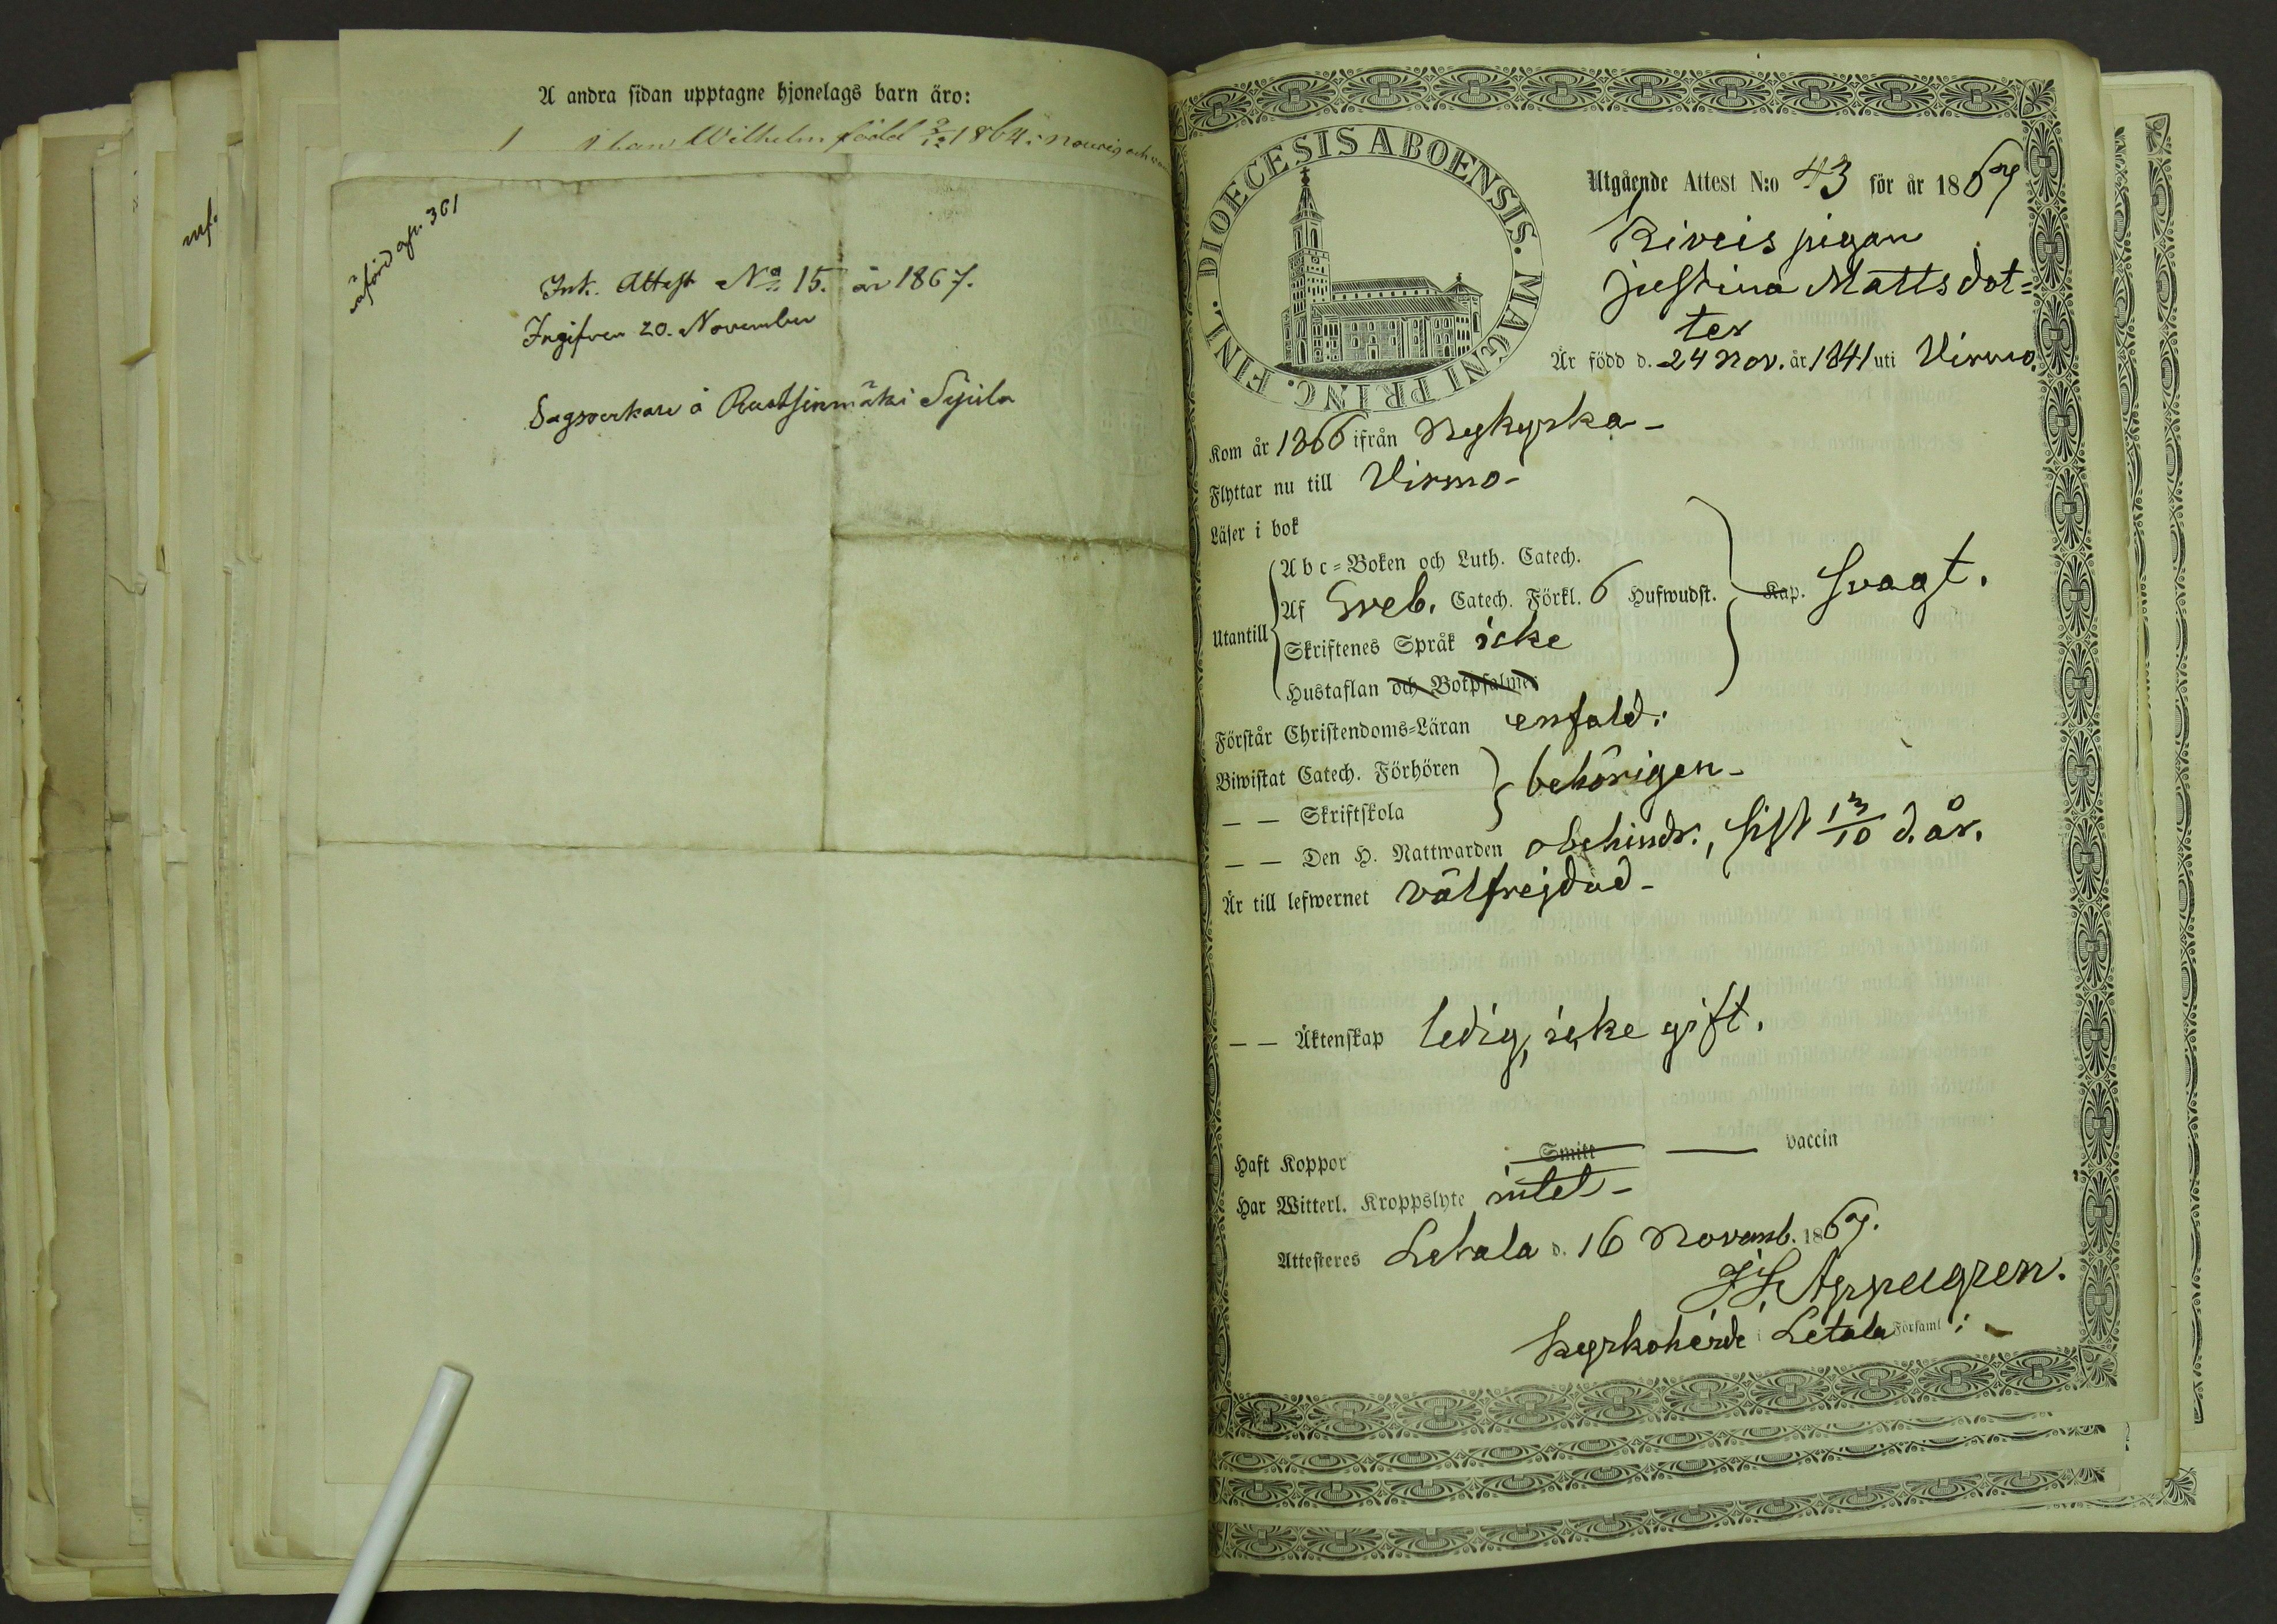 A andra sidan upptagne hjonelags barn äro:
Wilhelm född 1864
införd 361
Ink. Attest No 15. år 1867.
Ingifven 20. November
å Syrila
mf.
DIOECESIS ABOENSIS. MAGNI PRINC. FINL.
Utgående Attest N:o 43 för år 1867
pigan
Justina Mattsdot=
ter
Är född d. 24 Nov. år 1841 uti Virmo.
Kom år 1866 ifrån Nykyrka -
Flyttar nu till Virmo -
Läser i bok
Utantill
Abc=Boken och Luth. Catech.
Af Sveb. Catech. Förkl. 6 Hufwudst. Kap. svagt.
Skriftenes Språk icke
Hustaflan och Botpsalmer
Förstår Christendoms=Läran enfald.
Biwistat Catech. Förhören behörigen -
— — Skriftskola
— — Den H. Nattwarden obehindr., sist 13/10 d. år.
Är till lefwernet välfrejdad -
— — Äktenskap ledig, icke gift.
Haft Koppor Smitt — vaccin
Har Witterl. Kroppslyte intet -
Attesteres Letala d. 16 Novemb. 1867.
Appelgren.
Kyrkoherde i Letala Församl: